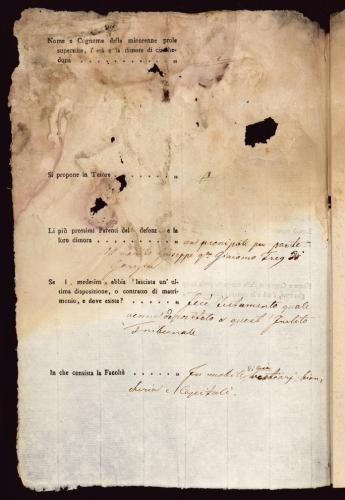 Nome e Cognome della minorenne prole
superstite, l'età e la dimora di ciasche-
duna . . . . . . . . . . . "
Si propone in Tutore . . . . . . "
Li più prossimi Parenti del defont e la
loro dimora . . . . . . . . . " pronipoti per parte
Giuseppe qm Giacomo
Se l medesim abbia lasciata un' ul-
tima disposizione, o contratto di matri-
monio, e dove esiste? . . . . . . " Fece testamento quale
venne depositato a quest'
Tribunale
In che consista la Facoltà . . . . . " In mobili, bian-
cheria e Capitali.